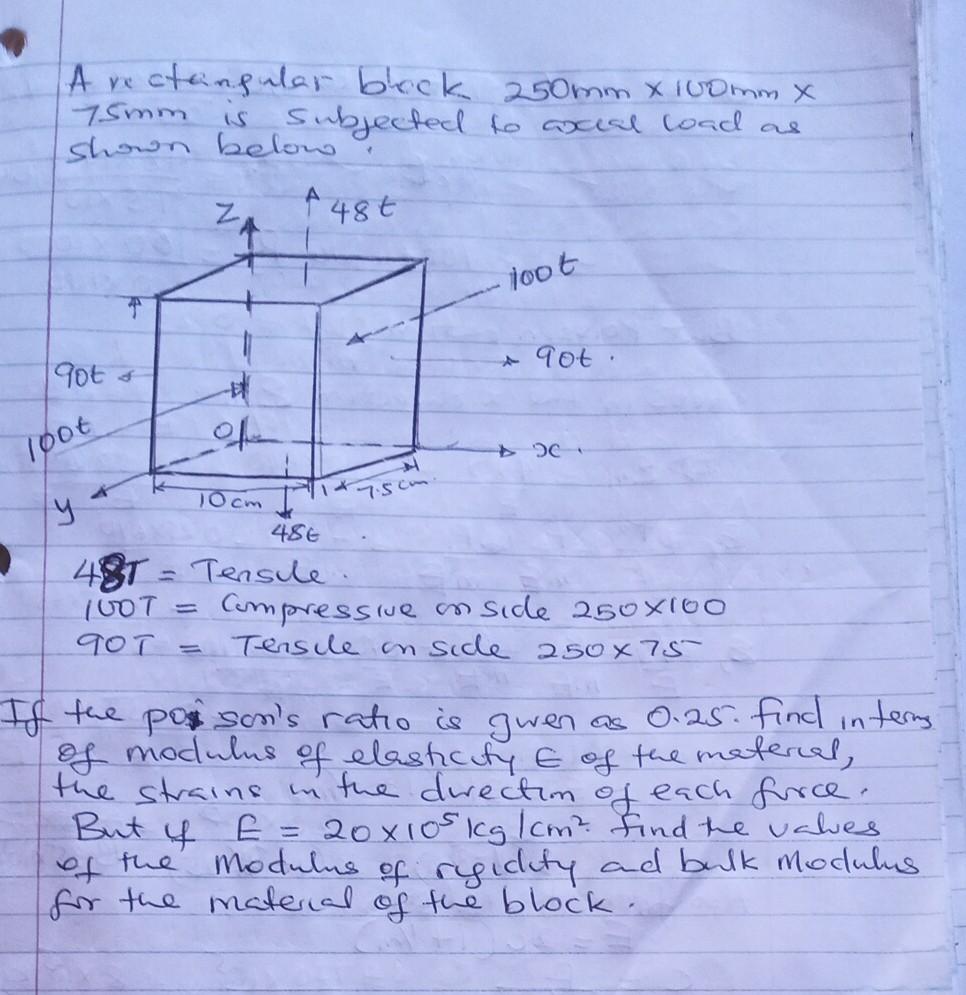 A rectangular block 250mm x 100mm x
75mm is subjected to axial load as
shown below.
Z
48t
100t
90t
90t
100t
O
x
y
10cm
7.5cm
48t
48T = Tensile.
100T = Compressive on side 250x100
90T = Tensile on side 250x75
If the poison's ratio is given as 0.25. find interms
of modulus of elasticity E of the material,
the strains in the direction of each force.
But if E = 20x10⁵ kg/cm² find the values
of the modulus of rigidity ad bulk modulus
for the material of the block.